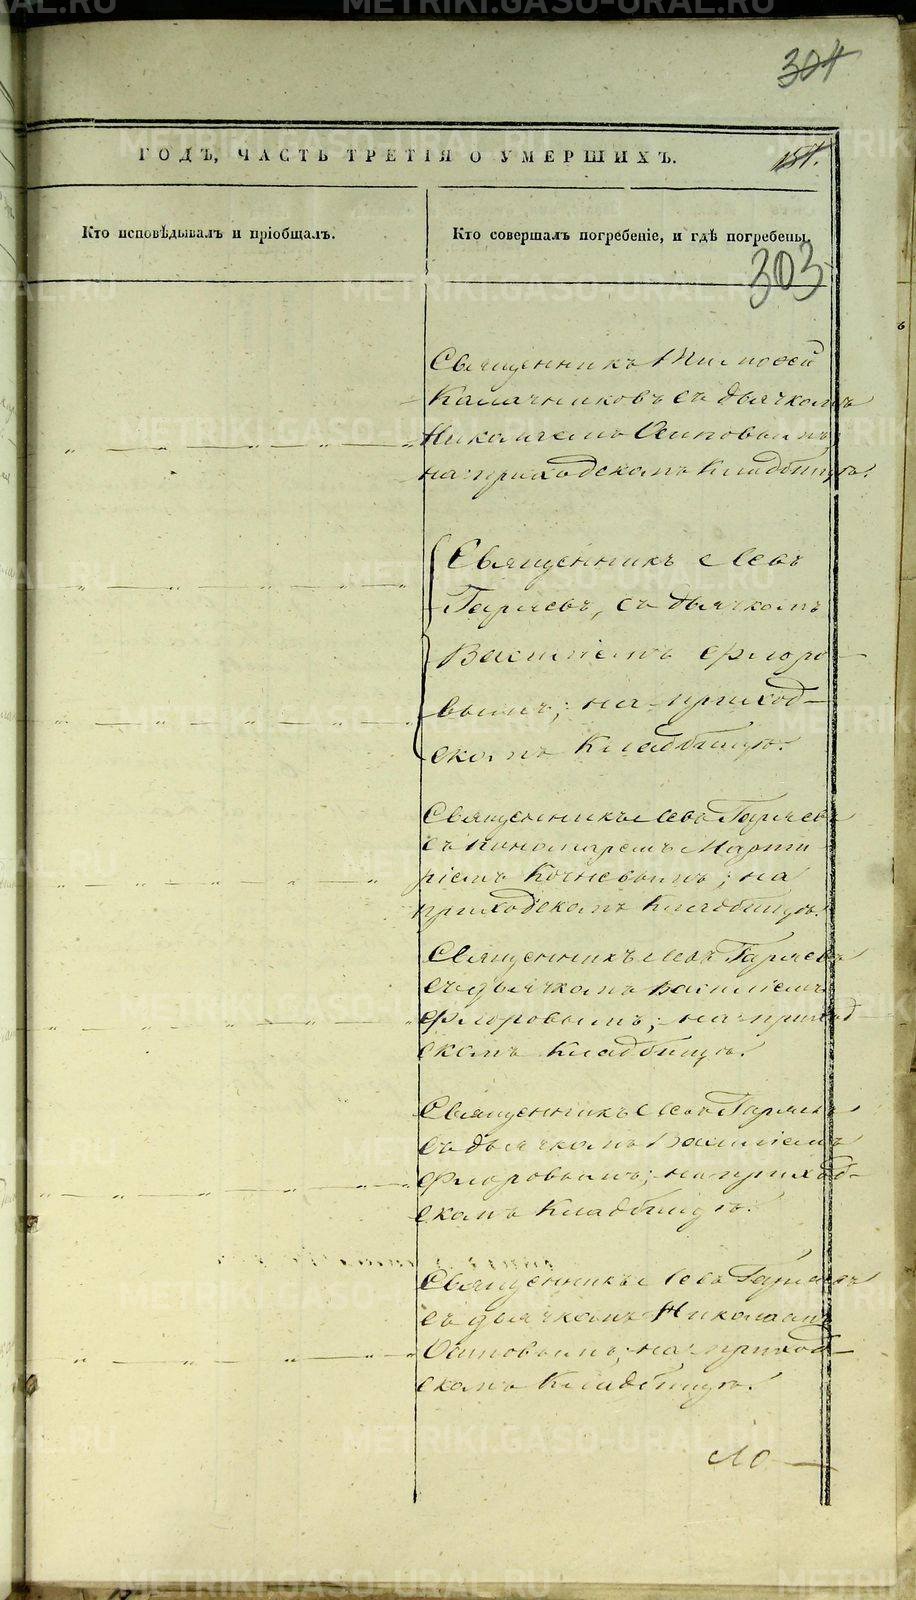 304
ГОДЪ, ЧАСТЬ ТРЕТІЯ О УМЕРШИХЪ.
Кто исповѣдывалъ и пріобщалъ.
Кто совершалъ погребеніе, и гдѣ погребены.
303
Священникъ Тимоѳей
Калачниковъ съ дьячкомъ
Николаемъ Осиповымъ;
на приходскомъ Кладбищѣ.
Священникъ Левъ
Гаряевъ, съ дьячкомъ
Василіемъ Флоро-
вымъ; на приход-
скомъ Кладбищѣ.
Священникъ Левъ Гаряевъ
съ пономаремъ Марти-
ріемъ Кочневымъ; на
приходскомъ Кладбищѣ.
Священникъ Левъ Гаряевъ
съ дьячкомъ Василіемъ
Флоровымъ; на приход
скомъ Кладбищѣ.
Священникъ Левъ Гаряевъ
съ дьячкомъ Василіемъ
Флоровымъ; на приход-
скомъ Кладбищѣ.
Священникъ Левъ Гаряевъ
съ дьячкомъ Николаемъ
Осиповымъ; на приход-
скомъ Кладбищѣ.
METRIKI.GASO-URAL.RU